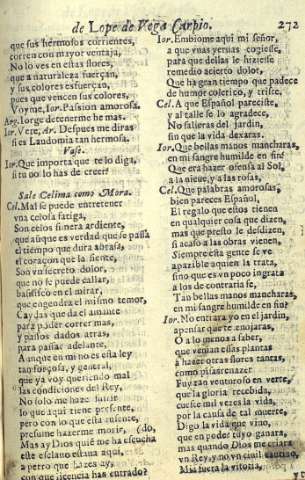 de Lope de Vega Carpio. 272
que sus hermosos corrientes,
corren con mayor ventaja,
No lo ves en estas flores,
que a naturaleza fuerçan,
y sus colores esfuerçan,
pues que vencen sus colores,
Voyme, Ior. Passion amorosa.
Arg. Iorge detenerme he mas.
Ior. Vete, Ar. Despues me diras
si es Laudomia tan hermosa.
Vase.
Ior. Que importa que te lo diga,
si tu no lo has de creer?
Sale Celima como Mora.
Cel. Mal se puede entretener
vna celosa fatiga,
Son celos si nera ardiente,
que aũque es verdad que se passa
el tiempo que dura abrasa,
el coraçon que la siente,
Son vn secreto dolor,
que no se puede callar,
basilisco en el mirar,
que engendra el mismo temor,
Cuydas que da el amante
para poder correr mas,
y passos dados atras,
para passar adelante,
Aunque en mi no es esta ley
tan forçosa, y general,
que ya voy queriendo mal
las condiciones del Rey,
No solo me haze
lo que aqui tiene presente,
pero con lo que està ausente,
presume hazerme morir, (do,
Mas ay Dios quiẽ me ha escucha
este esclauo estaua aqui,
a perro que hazes ay,
con que licencia has entrado?
Ior. Embiome aqui mi señor,
a que vnas yeruas cogiesse,
para que dellas le hiziesse
remedio acierto dolor,
Que ha gran tiempo que padece
de humor colerico, y triste,
Cel. A que Español pareciste,
y al talle se lo agradece,
No salieras del jardin,
sin que la vida dexaras.
Ior. Que bellas manos mancharas,
en mi sangre humilde en fin?
Que era hazer ofensa al Sol,
a la nieue, y a las rosas,
Cel. Que palabras amorosas,
bien pareces Español,
El regalo que estos tienen
en qualquier cosa que dizen,
mas que presto le desdizen,
si acaso a las obras vienen,
Siempre esta gente se ve
apazible aquien la trata,
sino que es vn poco ingrata
a los de contraria fe,
Tan bellas manos mancharas,
en mi sangre humilde en fin?
Ior. No entrara yo en el jardin,
a pensar que te enojaras,
O a lo menos a saber,
que venian essas plantas
a hazer otras flores tantas,
como pisas renazer
Fuy tan venturoso en verte,
que la gloria recebida,
cuesteme mil vezes la vida,
por la causa de tal muerte,
Digo la vida que vino,
que en poder tuyo ganara,
mas quando Dios me criara
vn Rey, y no vn ciuil cautiuo,
Mia fuera la vitoria,